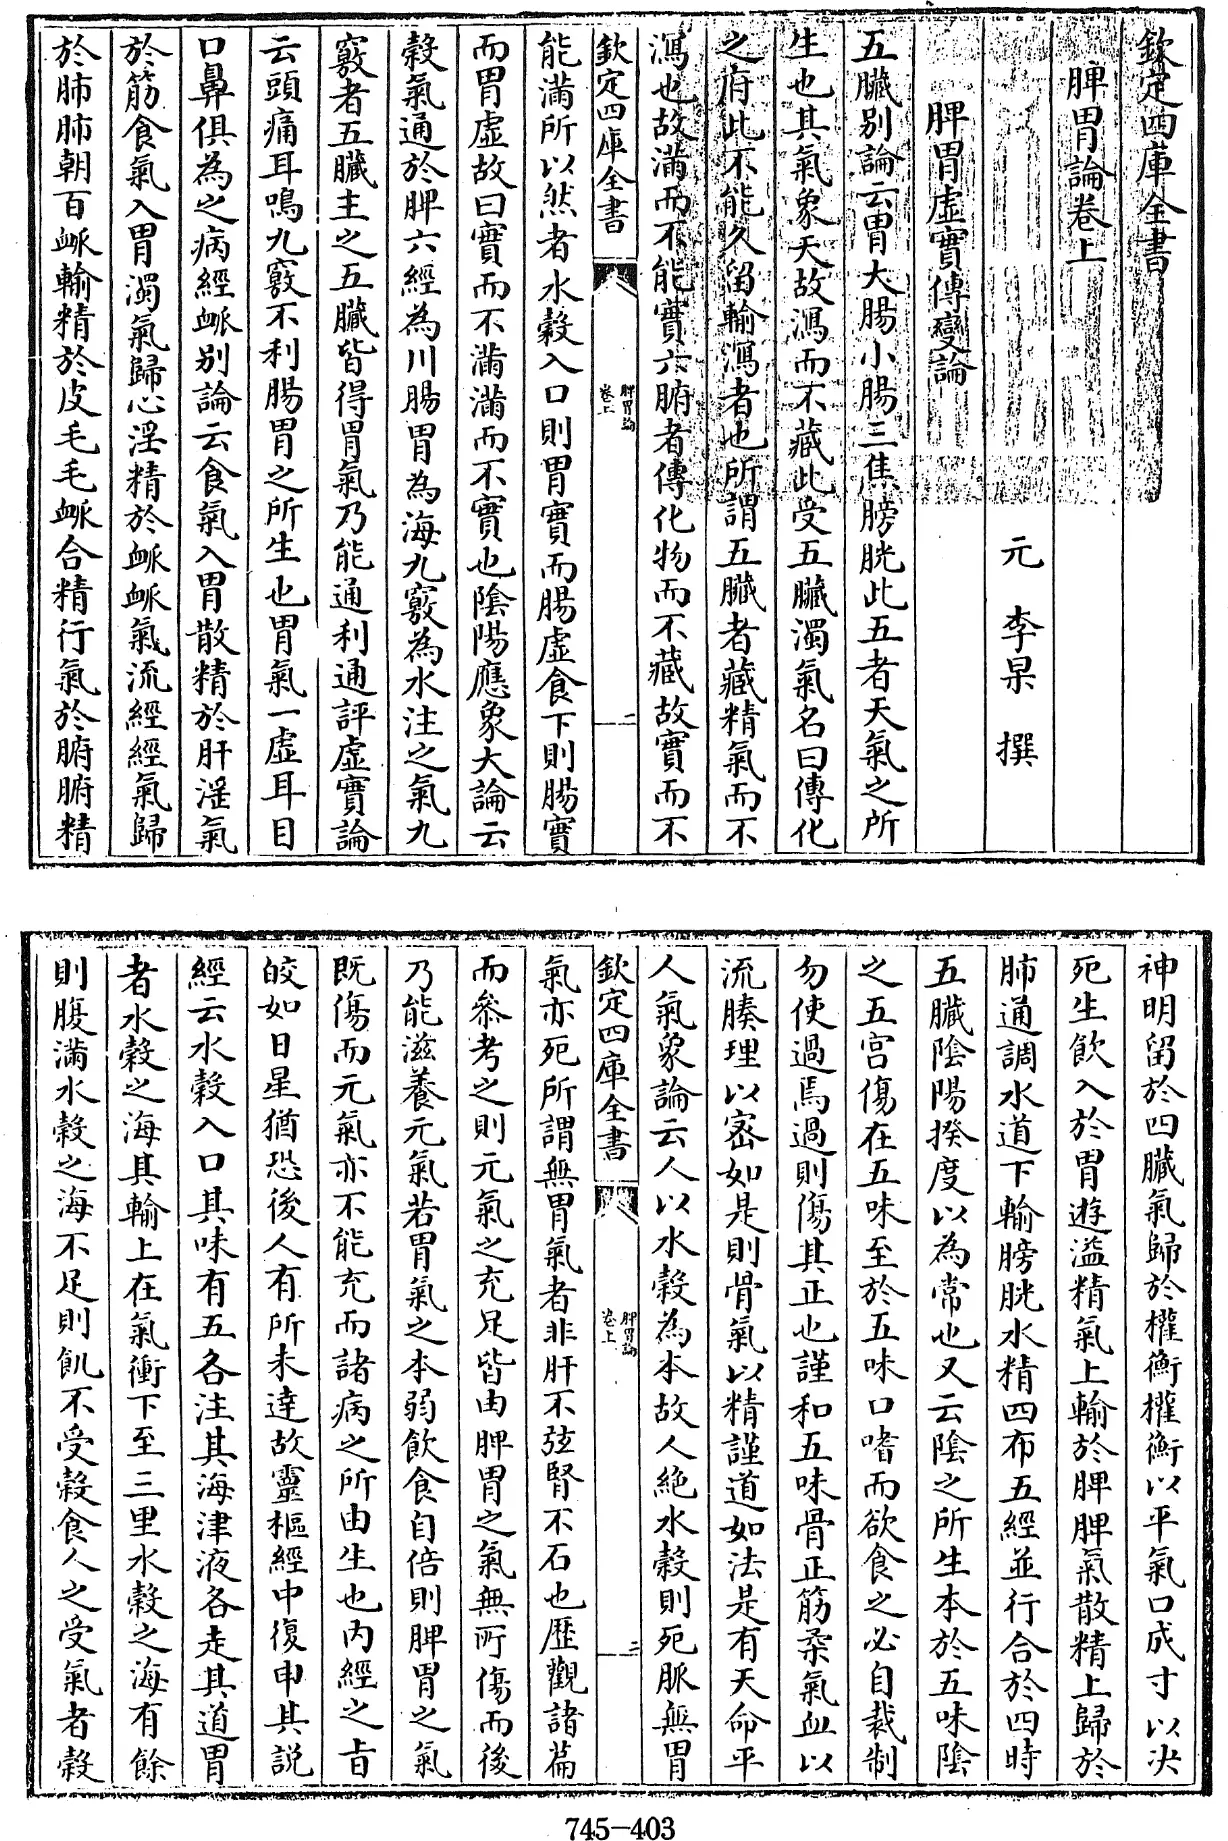 欽定四庫全書
脾胃論卷上
元 李杲 撰
脾胃虛實傳變論
五臟别論云胃大腸小腸三焦膀胱此五者天氣之所
生也其氣象天故瀉而不藏此受五臟濁氣名曰傳化
之府此不能久留輸瀉者也所謂五臟者藏精氣而不
瀉也故滿而不能實六腑者傳化物而不藏故實而不
欽定四庫全書
脾胃論
卷上
二
能滿所以然者水穀入口則胃實而腸虛食下則腸實
而胃虛故曰實而不滿滿而不實也陰陽應象大論云
穀氣通於脾六經為川腸胃為海九竅為水注之氣九
竅者五臟主之五臟皆得胃氣乃能通利通評虛實論
云頭痛耳鳴九竅不利腸胃之所生也胃氣一虛耳目
口鼻俱為之病經䘑别論云食氣入胃散精於肝淫氣
於筋食氣入胃濁氣歸心淫精於䘑䘑氣流經經氣歸
於肺肺朝百䘑輸精於皮毛毛䘑合精行氣於腑腑精
神明留於四臟氣歸於權衡權衡以平氣口成寸以决
死生飲入於胃遊溢精氣上輸於脾脾氣散精上歸於
肺通調水道下輸膀胱水精四布五經並行合於四時
五臟陰陽揆度以為常也又云陰之所生本於五味陰
之五宫傷在五味至於五味口嗜而欲食之必自裁制
勿使過焉過則傷其正也謹和五味骨正筋柔氣血以
流腠理以密如是則骨氣以精謹道如法是有天命平
人氣象論云人以水穀為本故人絶水穀則死脈無胃
欽定四庫全書
脾胃論
卷上
三
氣亦死所謂無胃氣者非肝不弦腎不石也歷觀諸篇
而參考之則元氣之充足皆由脾胃之氣無所傷而後
乃能滋養元氣若胃氣之本弱飲食自倍則脾胃之氣
既傷而元氣亦不能充而諸病之所由生也内經之㫖
皎如日星猶恐後人有所未達故靈樞經中復申其説
經云水穀入口其味有五各注其海津液各走其道胃
者水穀之海其輸上在氣衝下至三里水穀之海有餘
則腹滿水穀之海不足則飢不受穀食人之受氣者穀
745-403